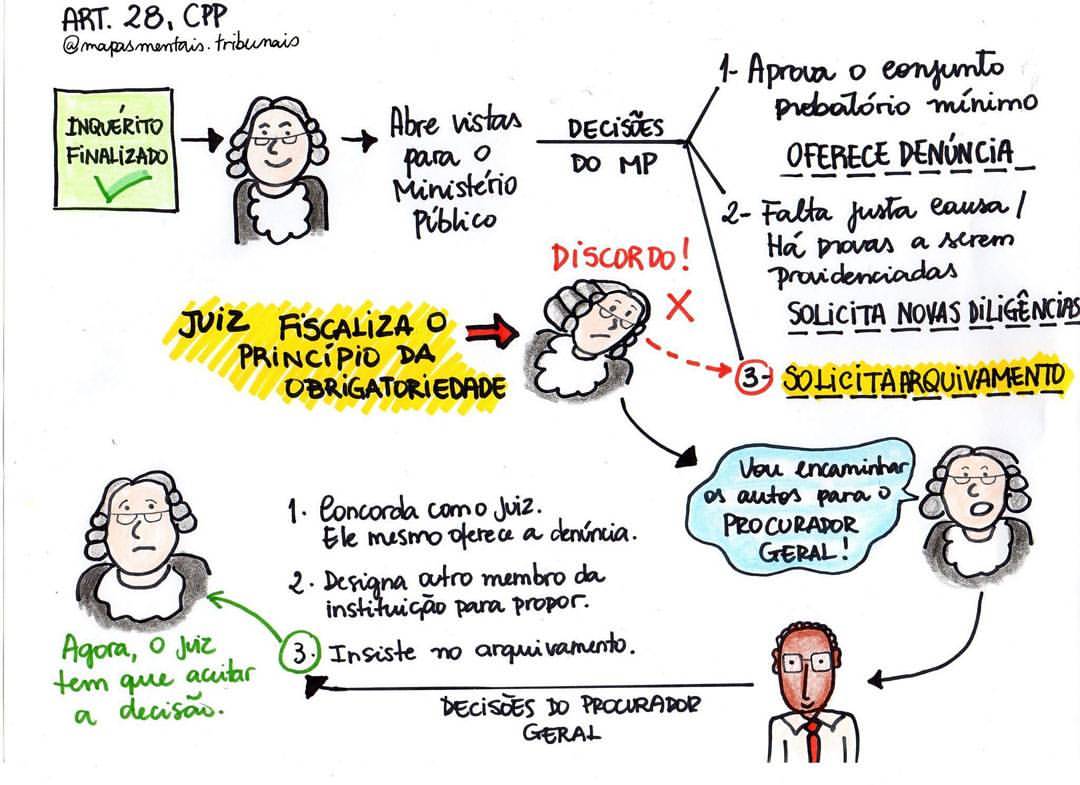 ART. 28, CPP
@mapasmentais.tribunais
INQUÉRITO
FINALIZADO
Abre vistas
para o
Ministério
Público
DECISÕES
DO MP
1- Aprova o conjunto
prebatório mínimo
OFERECE DENÚNCIA
2- Falta justa causa /
Há provas a serem
providenciadas
SOLICITA NOVAS DILIGÊNCIAS
3- SOLICITA ARQUIVAMENTO
DISCORDO!
X
JUIZ FISCALIZA O
PRINCÍPIO DA
OBRIGATORIEDADE
Vou encaminhar
os autos para o
PROCURADOR
GERAL!
1. Concorda com o juiz.
Ele mesmo oferece a denúncia.
2. Designa outro membro da
instituição para propor.
3. Insiste no arquivamento.
DECISÕES DO PROCURADOR
GERAL
Agora, o juiz
tem que aceitar
a decisão.